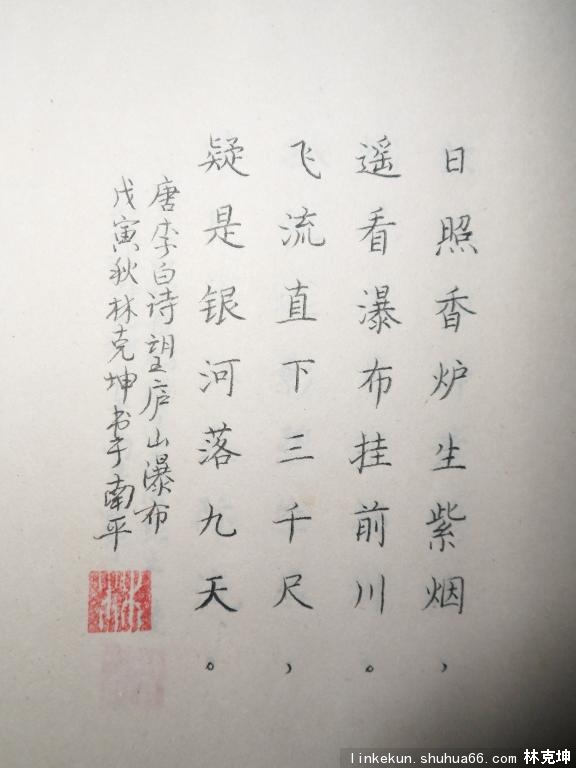 日照香炉生紫烟，
遥看瀑布挂前川。
飞流直下三千尺，
疑是银河落九天。
唐李白诗望庐山瀑布
戊寅秋林克坤书于南平
林
linkekun.shuhua66.com 林克坤